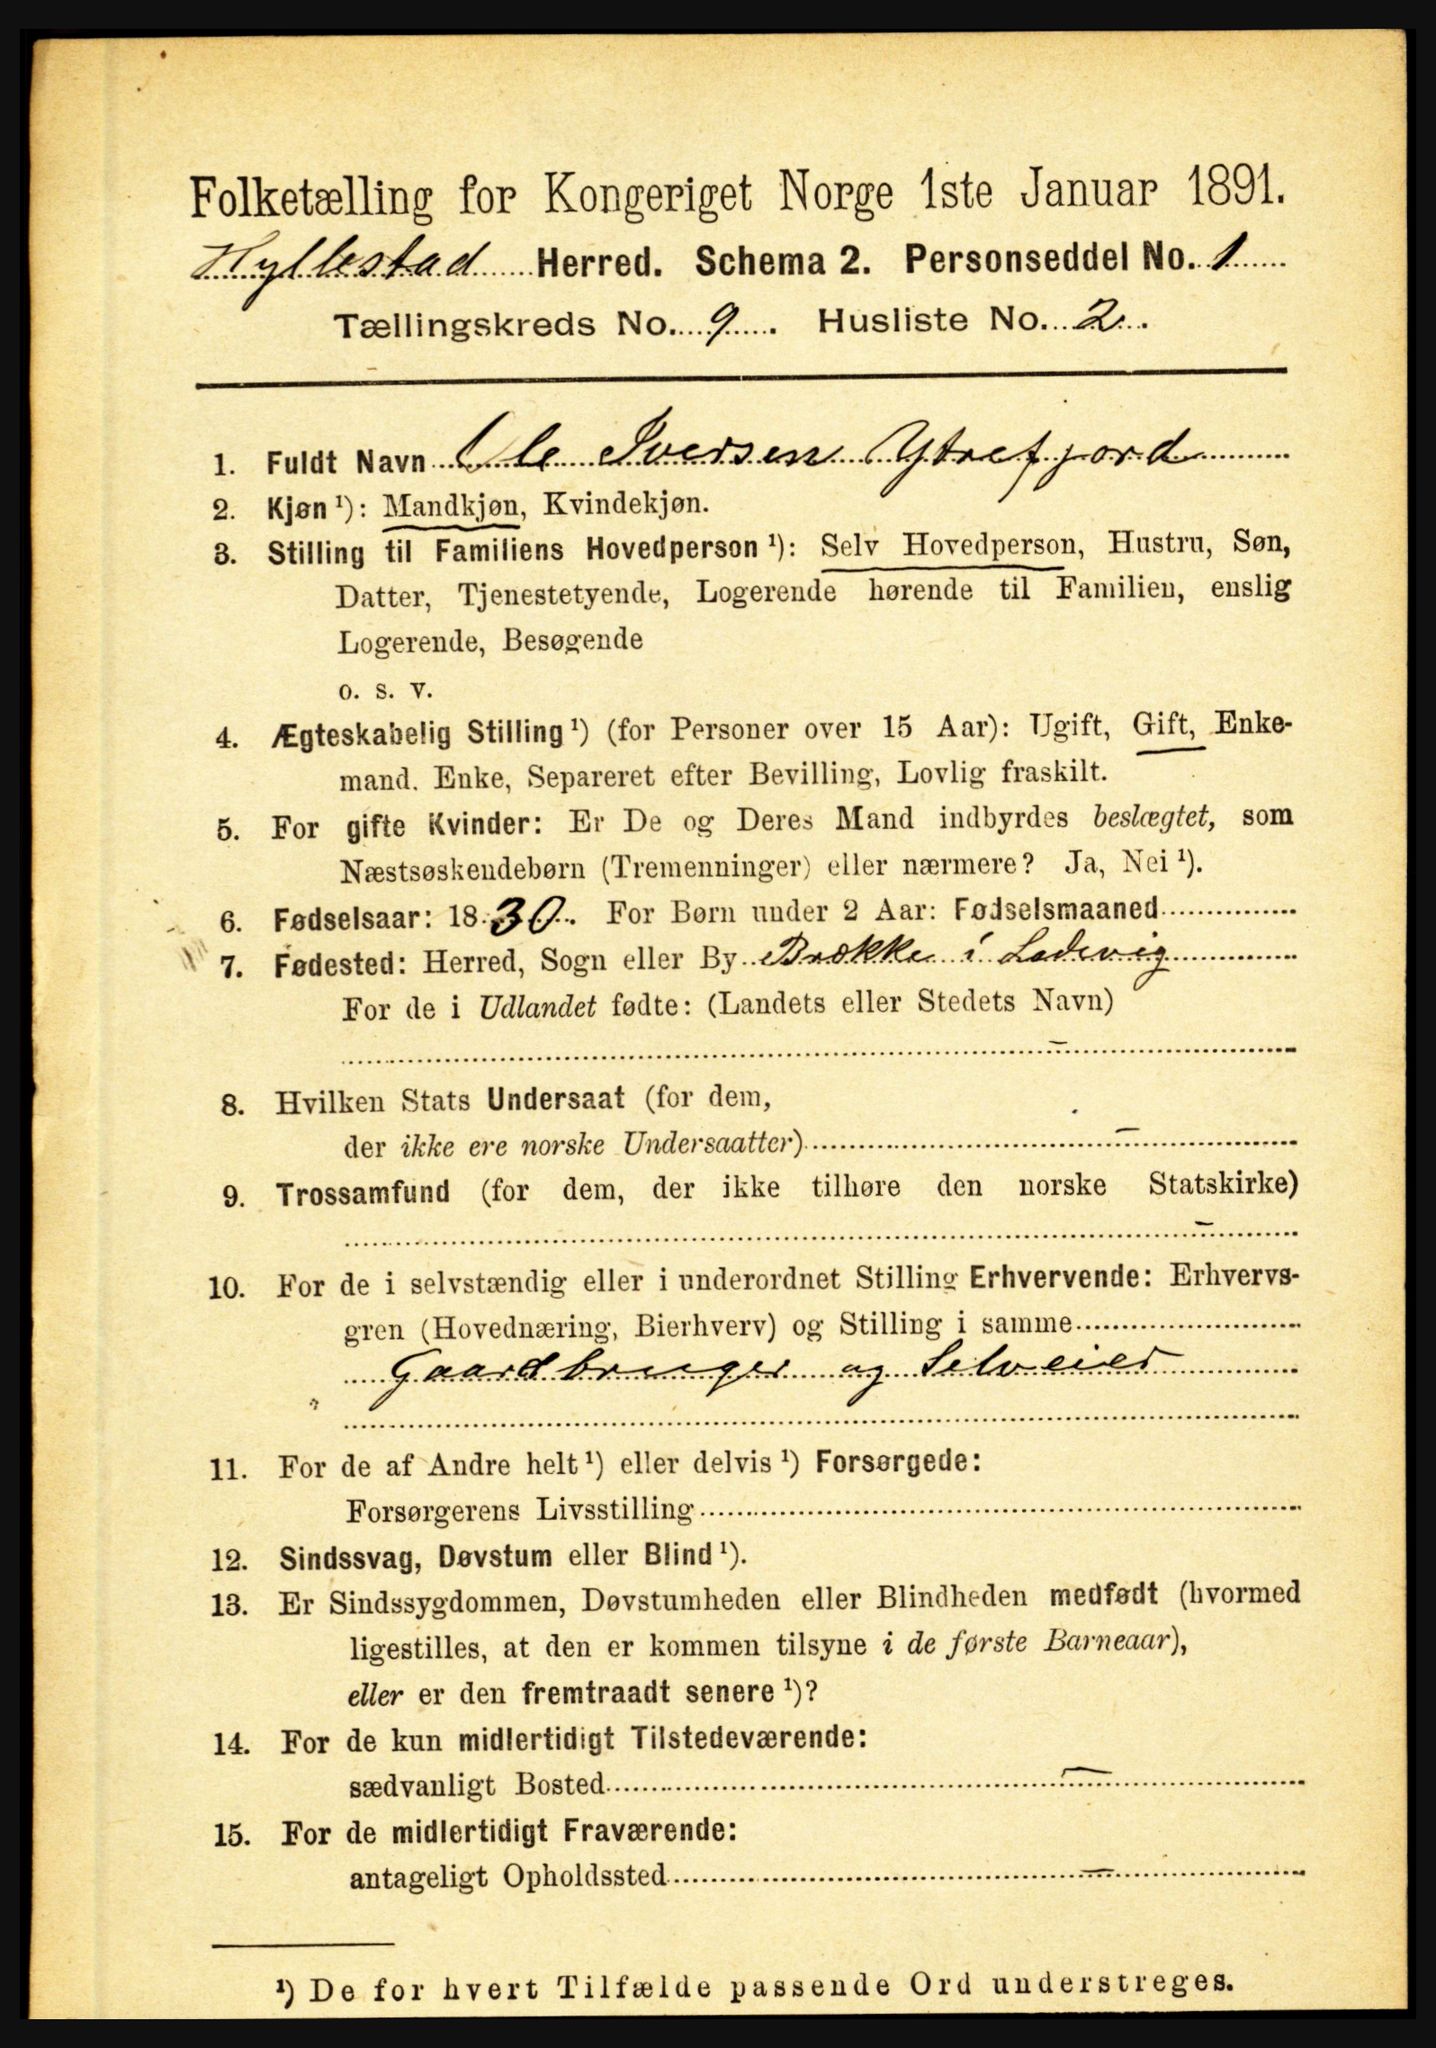 Folketælling for Kongeriget Norge 1ste Januar 1891.
Hyllestad Herred. Schema 2. Personseddel No. 1
Tællingskreds No. 9. Husliste No. 2.
1. Fuldt Navn Ole Iversen Ytrefjord
2. Kjøn¹): Mandkjøn, Kvindekjøn.
3. Stilling til Familiens Hovedperson¹): Selv Hovedperson, Hustru, Søn,
Datter, Tjenestetyende, Logerende hørende til Familien, enslig
Logerende, Besøgende
o. s. v.
4. Ægteskabelig Stilling¹) (for Personer over 15 Aar): Ugift, Gift, Enke-
mand. Enke, Separeret efter Bevilling, Lovlig fraskilt.
5. For gifte Kvinder: Er De og Deres Mand indbyrdes beslægtet, som
Næstsøskendebørn (Tremenninger) eller nærmere? Ja, Nei¹).
6. Fødselsaar: 1830. For Børn under 2 Aar: Fødselsmaaned
7. Fødested: Herred, Sogn eller By Brække i Ladevig
For de i Udlandet fødte: (Landets eller Stedets Navn)
–
8. Hvilken Stats Undersaat (for dem,
der ikke ere norske Undersaatter) –
9. Trossamfund (for dem, der ikke tilhøre den norske Statskirke)
–
10. For de i selvstændig eller i underordnet Stilling Erhvervende: Erhvervs-
gren (Hovednæring, Bierhverv) og Stilling i samme
Gaardbruger og Selveier
11. For de af Andre helt¹) eller delvis¹) Forsørgede:
Forsørgerens Livsstilling
12. Sindssvag, Døvstum eller Blind¹).
13. Er Sindssygdommen, Døvstumheden eller Blindheden medfødt (hvormed
ligestilles, at den er kommen tilsyne i de første Barneaar),
eller er den fremtraadt senere¹)?
14. For de kun midlertidigt Tilstedeværende:
sædvanligt Bosted –
15. For de midlertidigt Fraværende:
antageligt Opholdssted –
¹) De for hvert Tilfælde passende Ord understreges.